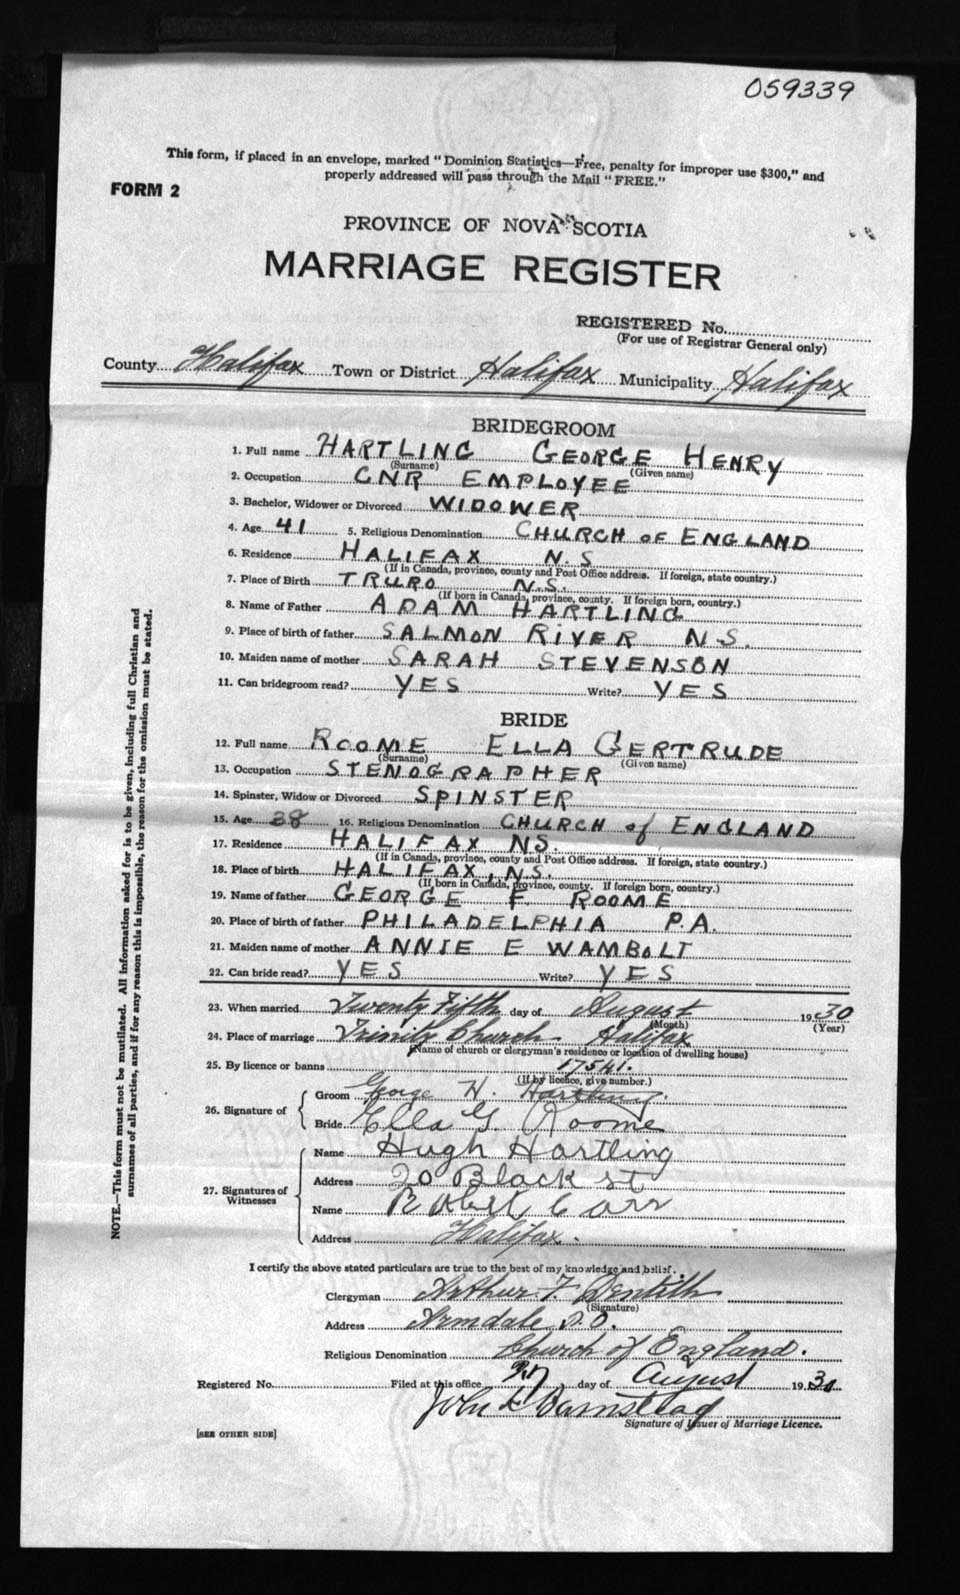 059339
This form, if placed in an envelope, marked "Dominion Statistics—Free, penalty for improper use $300," and
properly addressed will pass through the Mail "FREE."
FORM 2
PROVINCE OF NOVA SCOTIA
MARRIAGE REGISTER
REGISTERED No.
(For use of Registrar General only)
County Halifax Town or District Halifax Municipality Halifax
BRIDEGROOM
1. Full name HARTLING GEORGE HENRY
(Surname) (Given name)
2. Occupation CNR EMPLOYEE
3. Bachelor, Widower or Divorced WIDOWER
4. Age 41 5. Religious Denomination CHURCH OF ENGLAND
6. Residence HALIFAX N.S
(If in Canada, province, county and Post Office address. If foreign, state country.)
7. Place of Birth TRURO N.S.
(If born in Canada, province, county. If foreign born, country.)
8. Name of Father ADAM HARTLING
9. Place of birth of father SALMON RIVER N.S.
10. Maiden name of mother SARAH STEVENSON
11. Can bridegroom read? YES Write? YES
BRIDE
12. Full name ROOME ELLA GERTRUDE
(Surname) (Given name)
13. Occupation STENOGRAPHER
14. Spinster, Widow or Divorced SPINSTER
15. Age 38 16. Religious Denomination CHURCH of ENGLAND
17. Residence HALIFAX NS.
(If in Canada, province, county and Post Office address. If foreign, state country.)
18. Place of birth HALIFAX, N.S.
(If born in Canada, province, county. If foreign born, country.)
19. Name of father GEORGE F ROOME
20. Place of birth of father PHILADELPHIA P.A.
21. Maiden name of mother ANNIE E WAMBOLT
22. Can bride read? YES Write? YES
23. When married Twenty Fifth day of August 1930
(Month) (Year)
24. Place of marriage Trinity Church Halifax
(Name of church or clergyman's residence or location of dwelling house)
25. By licence or banns 17541.
(If by licence, give number.)
26. Signature of
Groom George H. Hartling.
Bride Ella G. Roome
27. Signatures of Witnesses
Name Hugh Hartling
Address 20 Black st
Name Robert Carr
Address Halifax.
I certify the above stated particulars are true to the best of my knowledge and belief.
Clergyman Arthur F Dentith
(Signature)
Address Armdale P.O.
Religious Denomination Church of England.
Registered No. Filed at this office 27 day of August 1930
John Barnstead
Signature of Issuer of Marriage Licence.
[SEE OTHER SIDE]
NOTE.—This form must not be mutilated. All information asked for is to be given, including full Christian and
surnames of all parties, and if for any reason this is impossible, the reason for the omission must be stated.